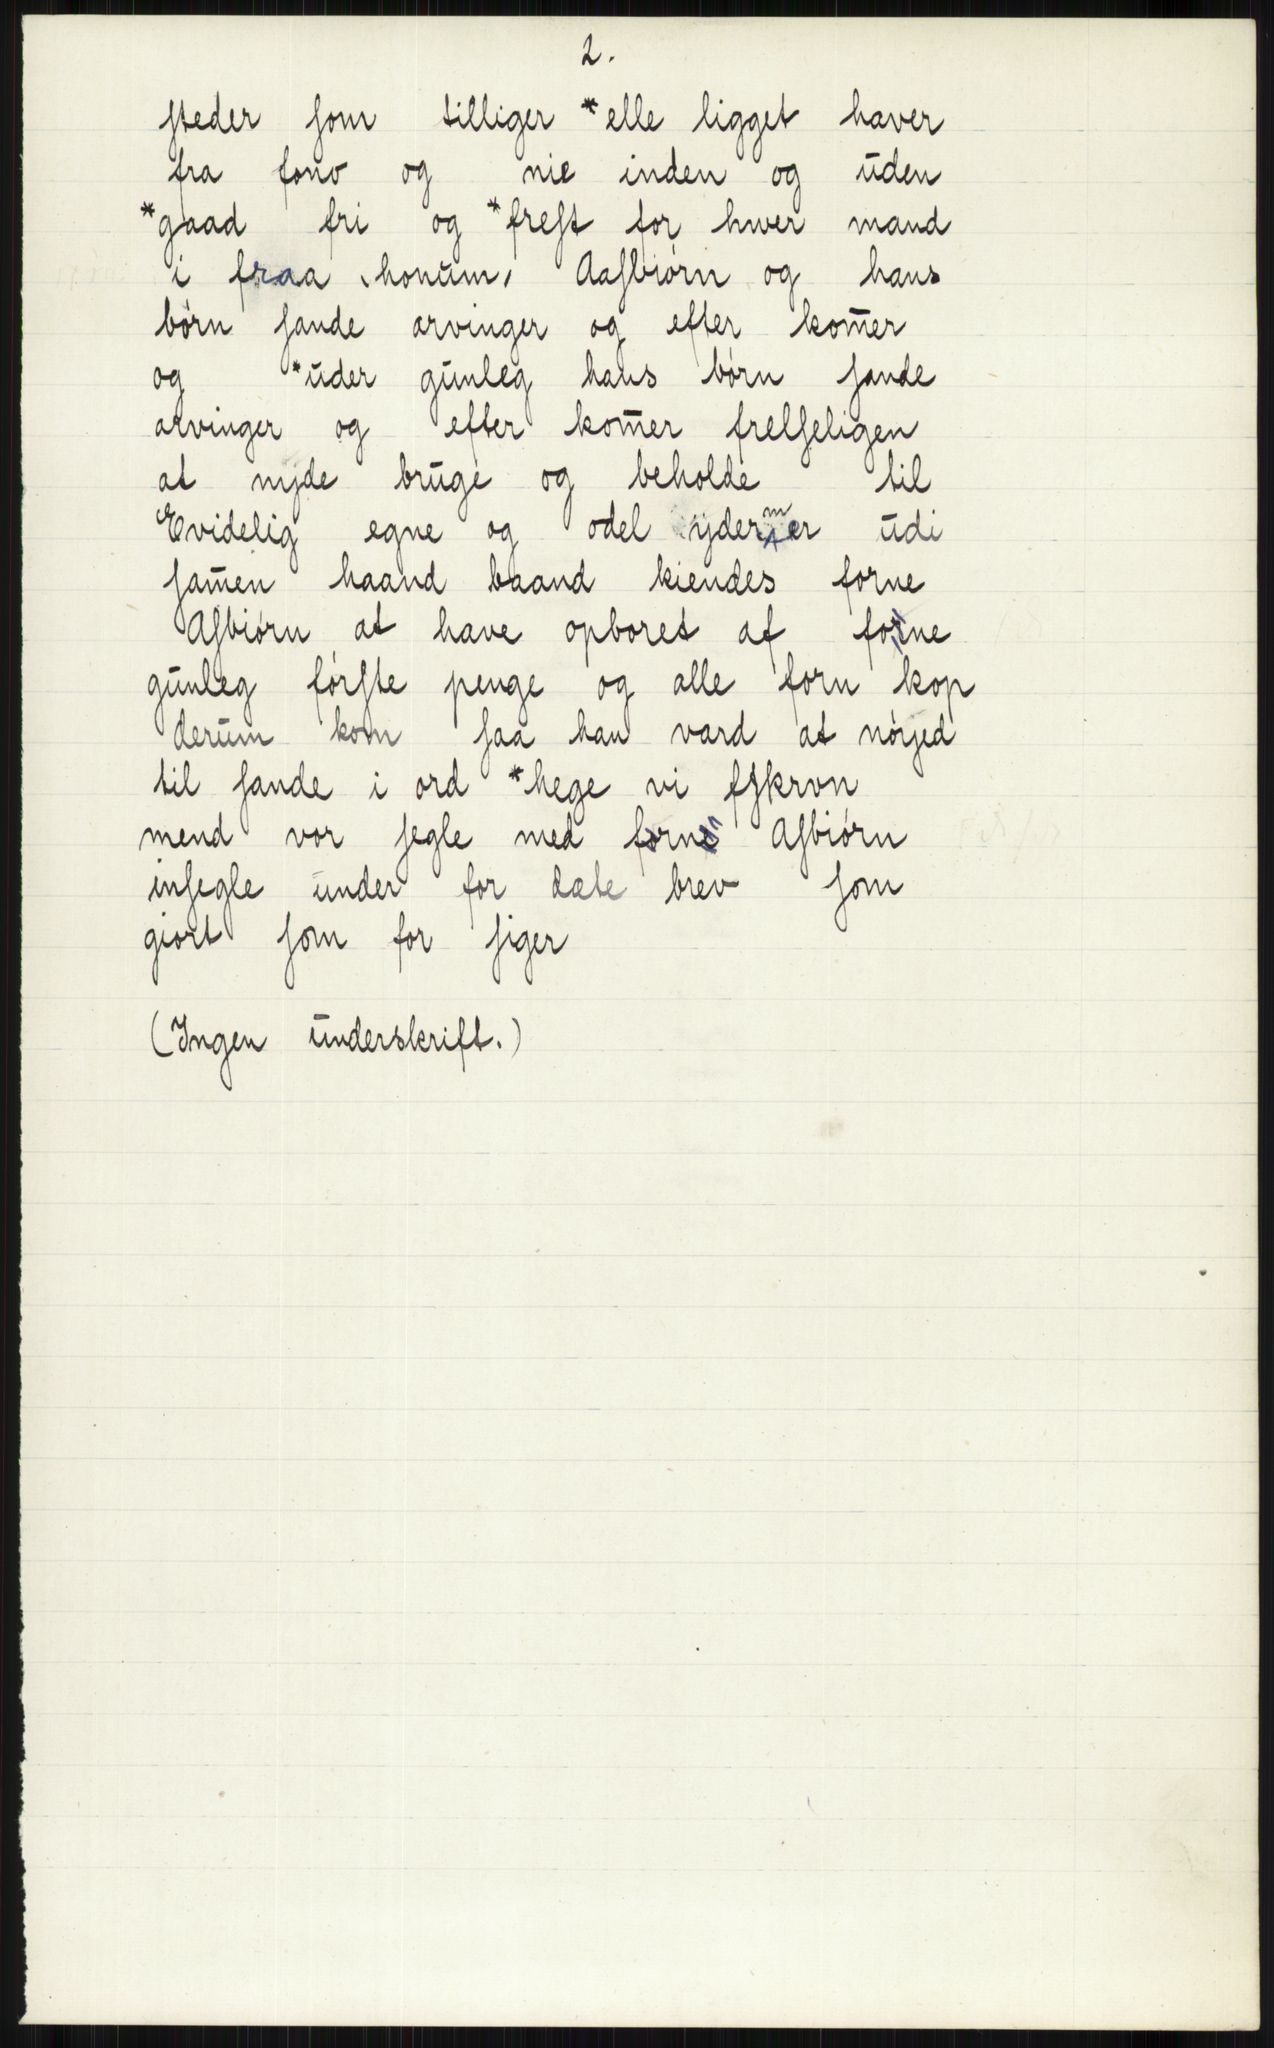 2.
steder som tilliger *elle ligget haver
fra fono og nie inden og uden
*gaad fri og *frest for hwer mand
i fraa honum, Aasbiørn og hans
børn sande arvinger og efter kom̄er
og *uder gunleg hans børn sande
arvinger og efter kom̄er frelseligen
at nyde bruge og beholde til
Evidelig egne og odel ydermer udi
sam̄en haand baand kiendes forne
Asbiørn at have opboret af forne
gunleg første penge og alle forn kop
derum kom saa han vard at nøyed
til sande i ord *hege vi fskron
mend vor segle med forne Asbiørn
insegle under for dæte brev som
giort som for siger
(Ingen underskrift.)